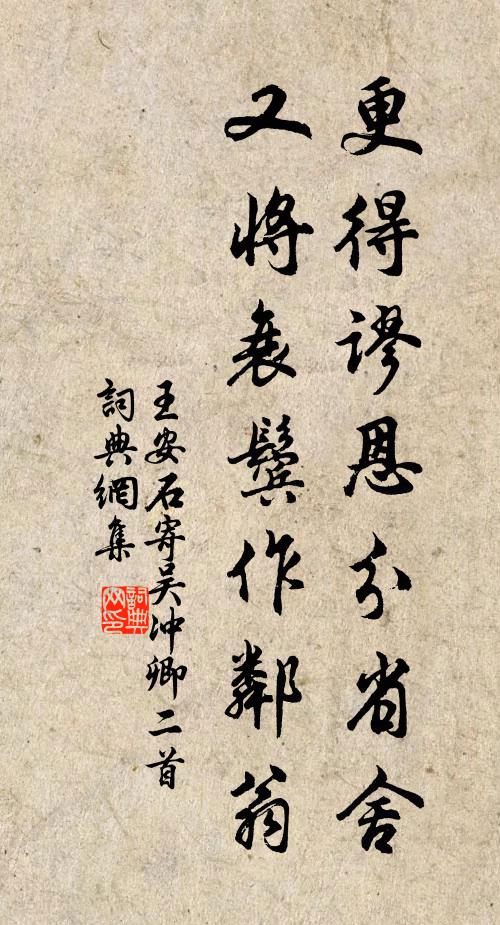 更得謬恩分省舍
又將衰鬢作鄰翁
王安石寄吴冲卿二首
詞典網集
詞典網印